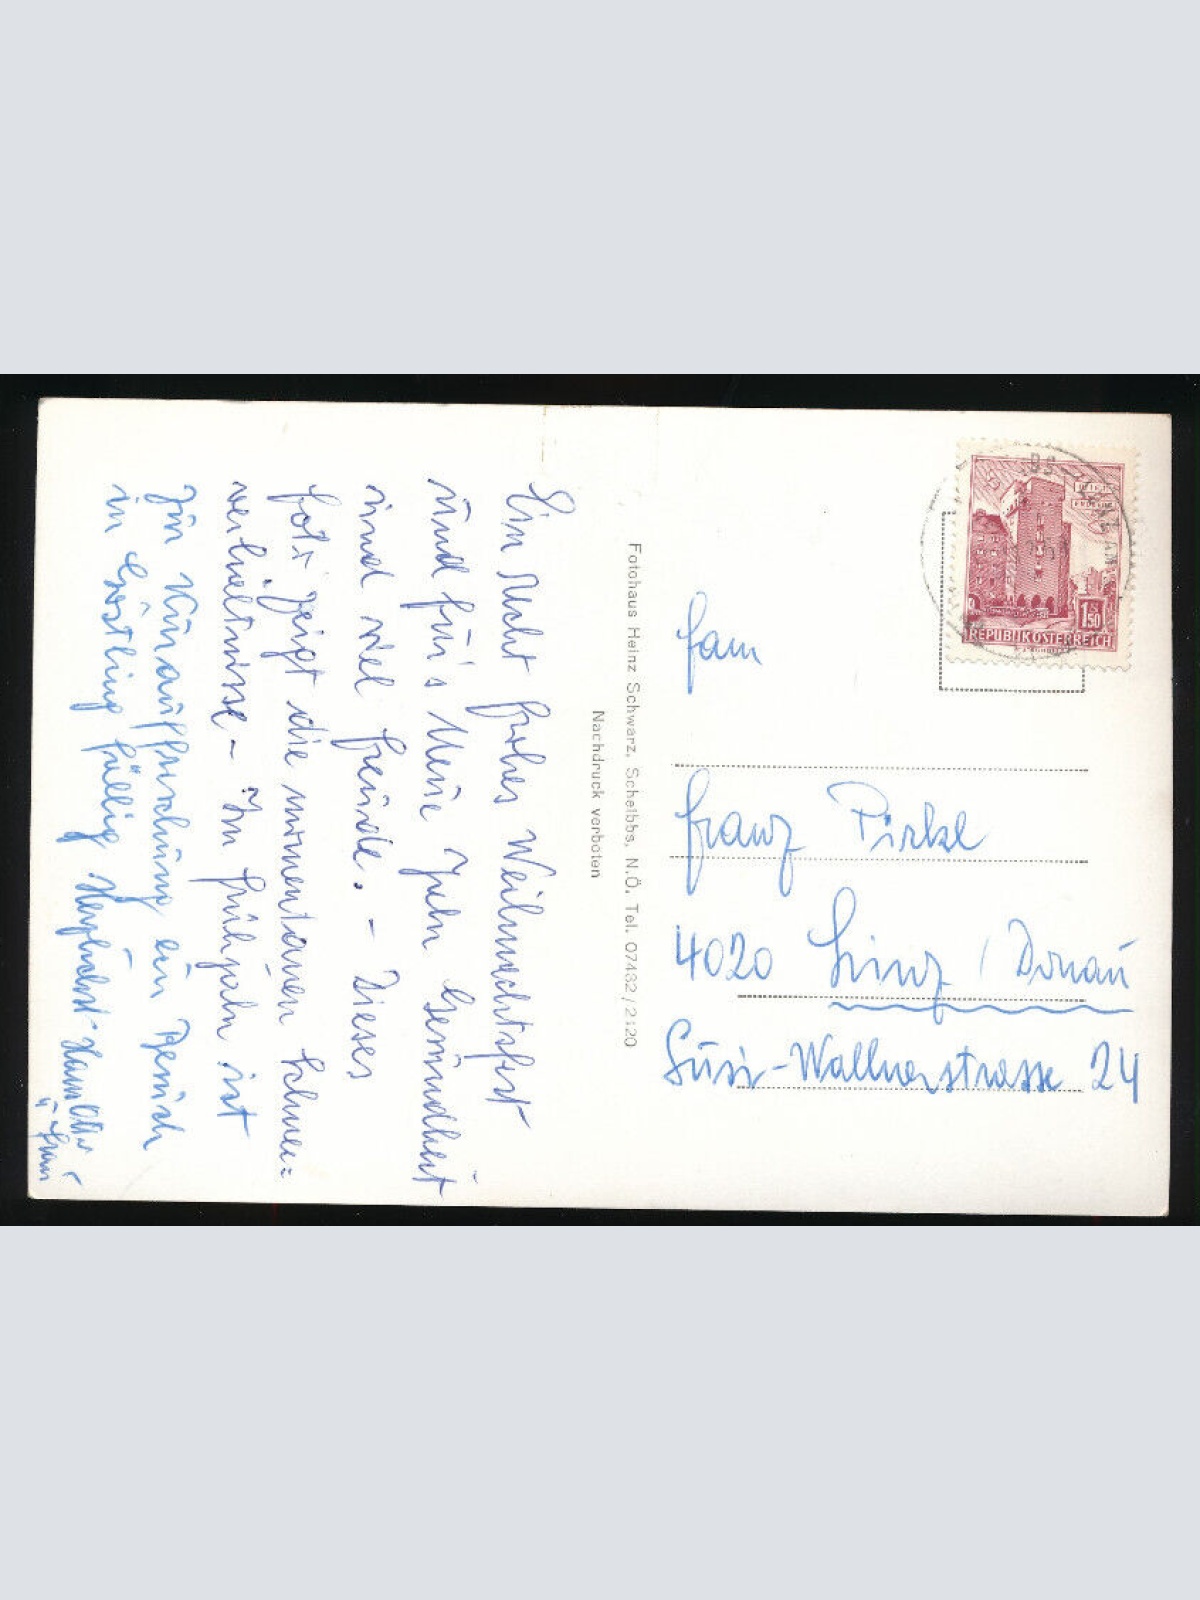 Ein recht frohes Weihnachtsfest
und für's Neue Jahr Gesundheit
und viel Freude. - Dieses
Foto zeigt die momentanen Schnee=
verhältnisse - Im Frühjahr ist
zur Kurauffrischung ein Besuch
in Göstling fällig Herzlichst
u. Frau
Fotohaus Heinz Schwarz, Scheibbs, N.Ö. Tel. 07482/2120
Nachdruck verboten
REPUBLIK ÖSTERREICH
S 1.50
Fam
Franz Pirkl
4020 Linz / Donau
Susi-Wallnerstrasse 24